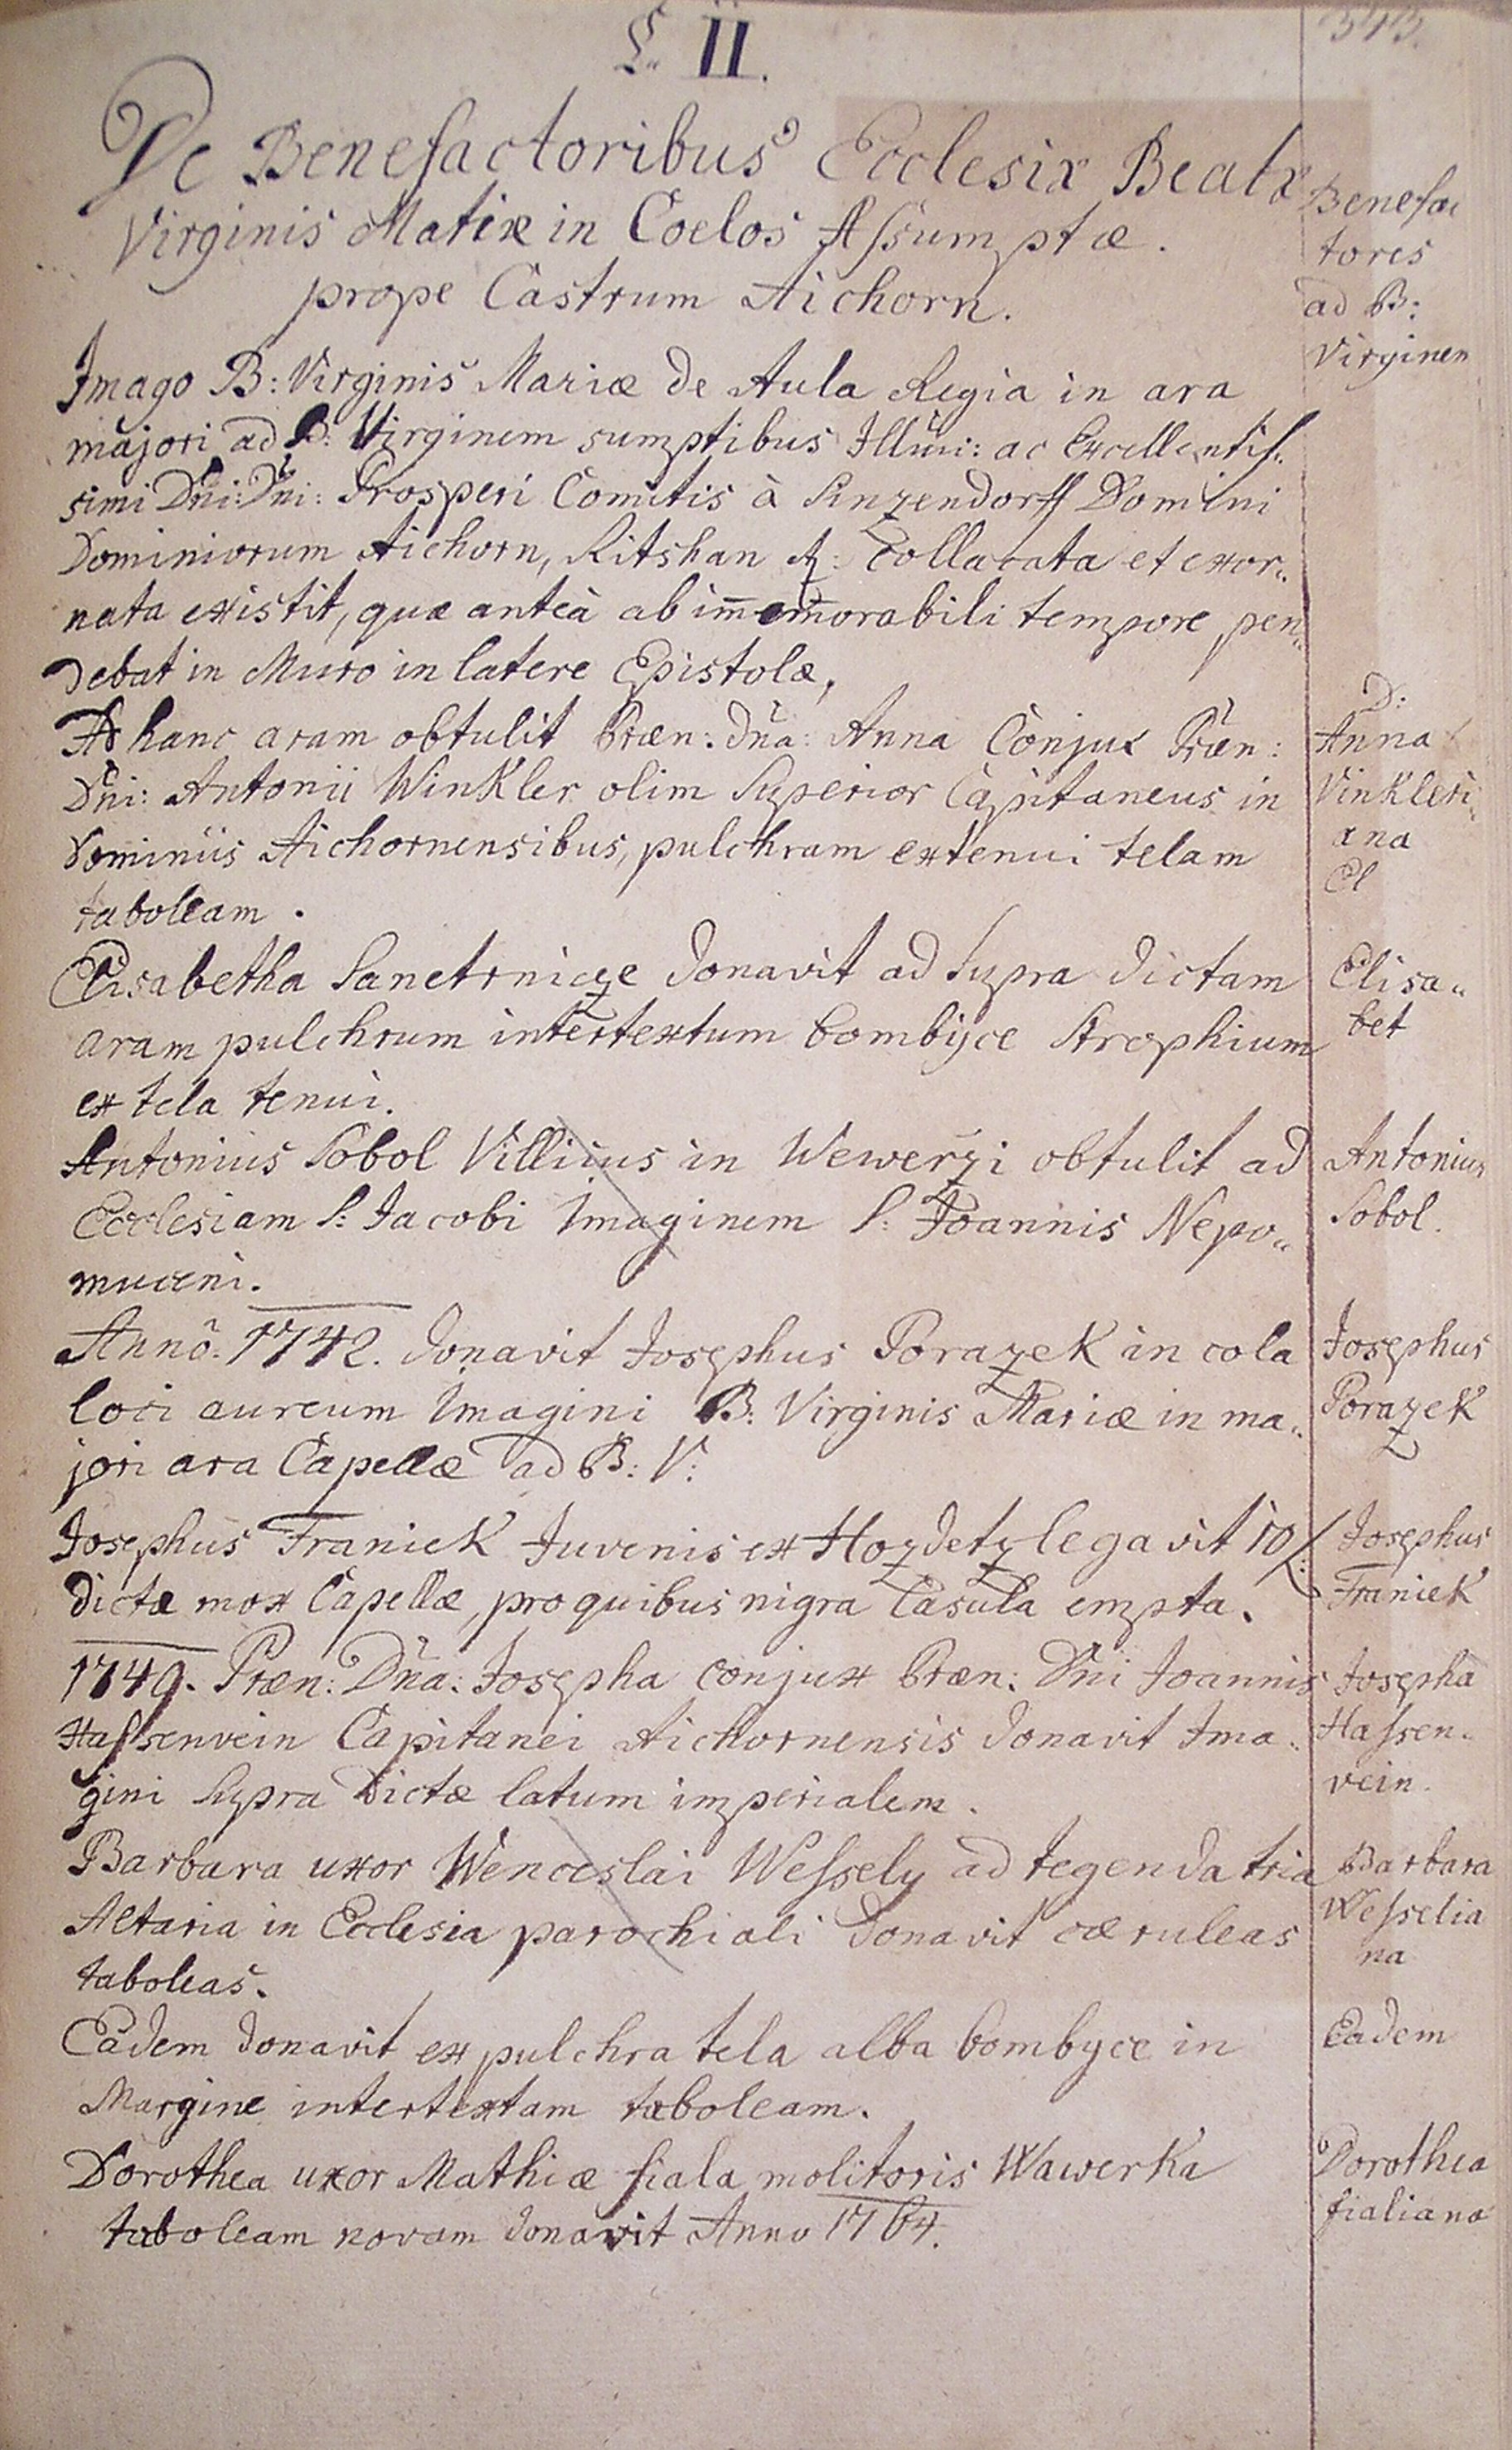 §. II.
343.
De Benefactoribus Ecclesiæ Beatæ
Virginis Mariæ in Coelos Assumptæ.
prope Castrum Aichorn.
Benefac
tores
ad B:
Virginem
Imago B: Virginis Mariæ de Aula Regia in ara
majori ad B: Virginem sumptibus Illmi: ac Excellentis„
simi Dñi: Dñi: Prosperi Comitis à Sinzendorff Domini
Dominiorum Aichorn, Ritshan &: Collacata et exor„
nata existit, quæ anteà ab im̅emorabili tempore pen„
debat in Muro in latere Epistolæ,
Ad hanc aram obtulit Præn: Dña: Anna Conjux Præn:
Dñi: Antonii Winkler olim Superior Capitaneus in
Dominiis Aichornensibus, pulchram ex tenui telam
taboleam.
D:
Anna
Vinkleri„
ana
El
Elisabetha Sanetrnicze donavit ad Supra dictam
aram pulchrum intertextum bombyce Strophium
ex tela tenui.
Elisa„
bet
Antonius Sobol Villicus in Wewerzi obtulit ad
Ecclesiam S: Jacobi Imaginem S: Joannis Nepo„
muceni.
Antonius
Sobol.
Annô. 1742. donavit Josephus Porazek in cola
loci aureum Imagini B: Virginis Mariæ in ma„
jori ara Capellæ ad B: V:
Josephus
Porazek
Josephus Franiek Juvenis ex Hozdetz legavit 10 f:
dictæ mox Capellæ, pro quibus nigra Casula empta.
Josephus
Franiek
1749. Præn: Dña: Josepha conjux Præn: Dñi Joannis
Hassenvein Capitanei Aichornensis donavit Ima„
gini Supra Dictæ latum imperialem.
Josepha
Hassen„
vein.
Barbara uxor Wenceslai Wessely ad tegenda tria
Altaria in Ecclesia parochiali donavit cæruleas
taboleas.
Barbara
Wesselia
na
Eadem donavit ex pulchra tela alba bombyce in
Margine intertextam taboleam.
Eadem
Dorothea uxor Mathiæ fiala molitoris Wawerka
taboleam novam donavit Anno 1764.
Dorothea
fialiana